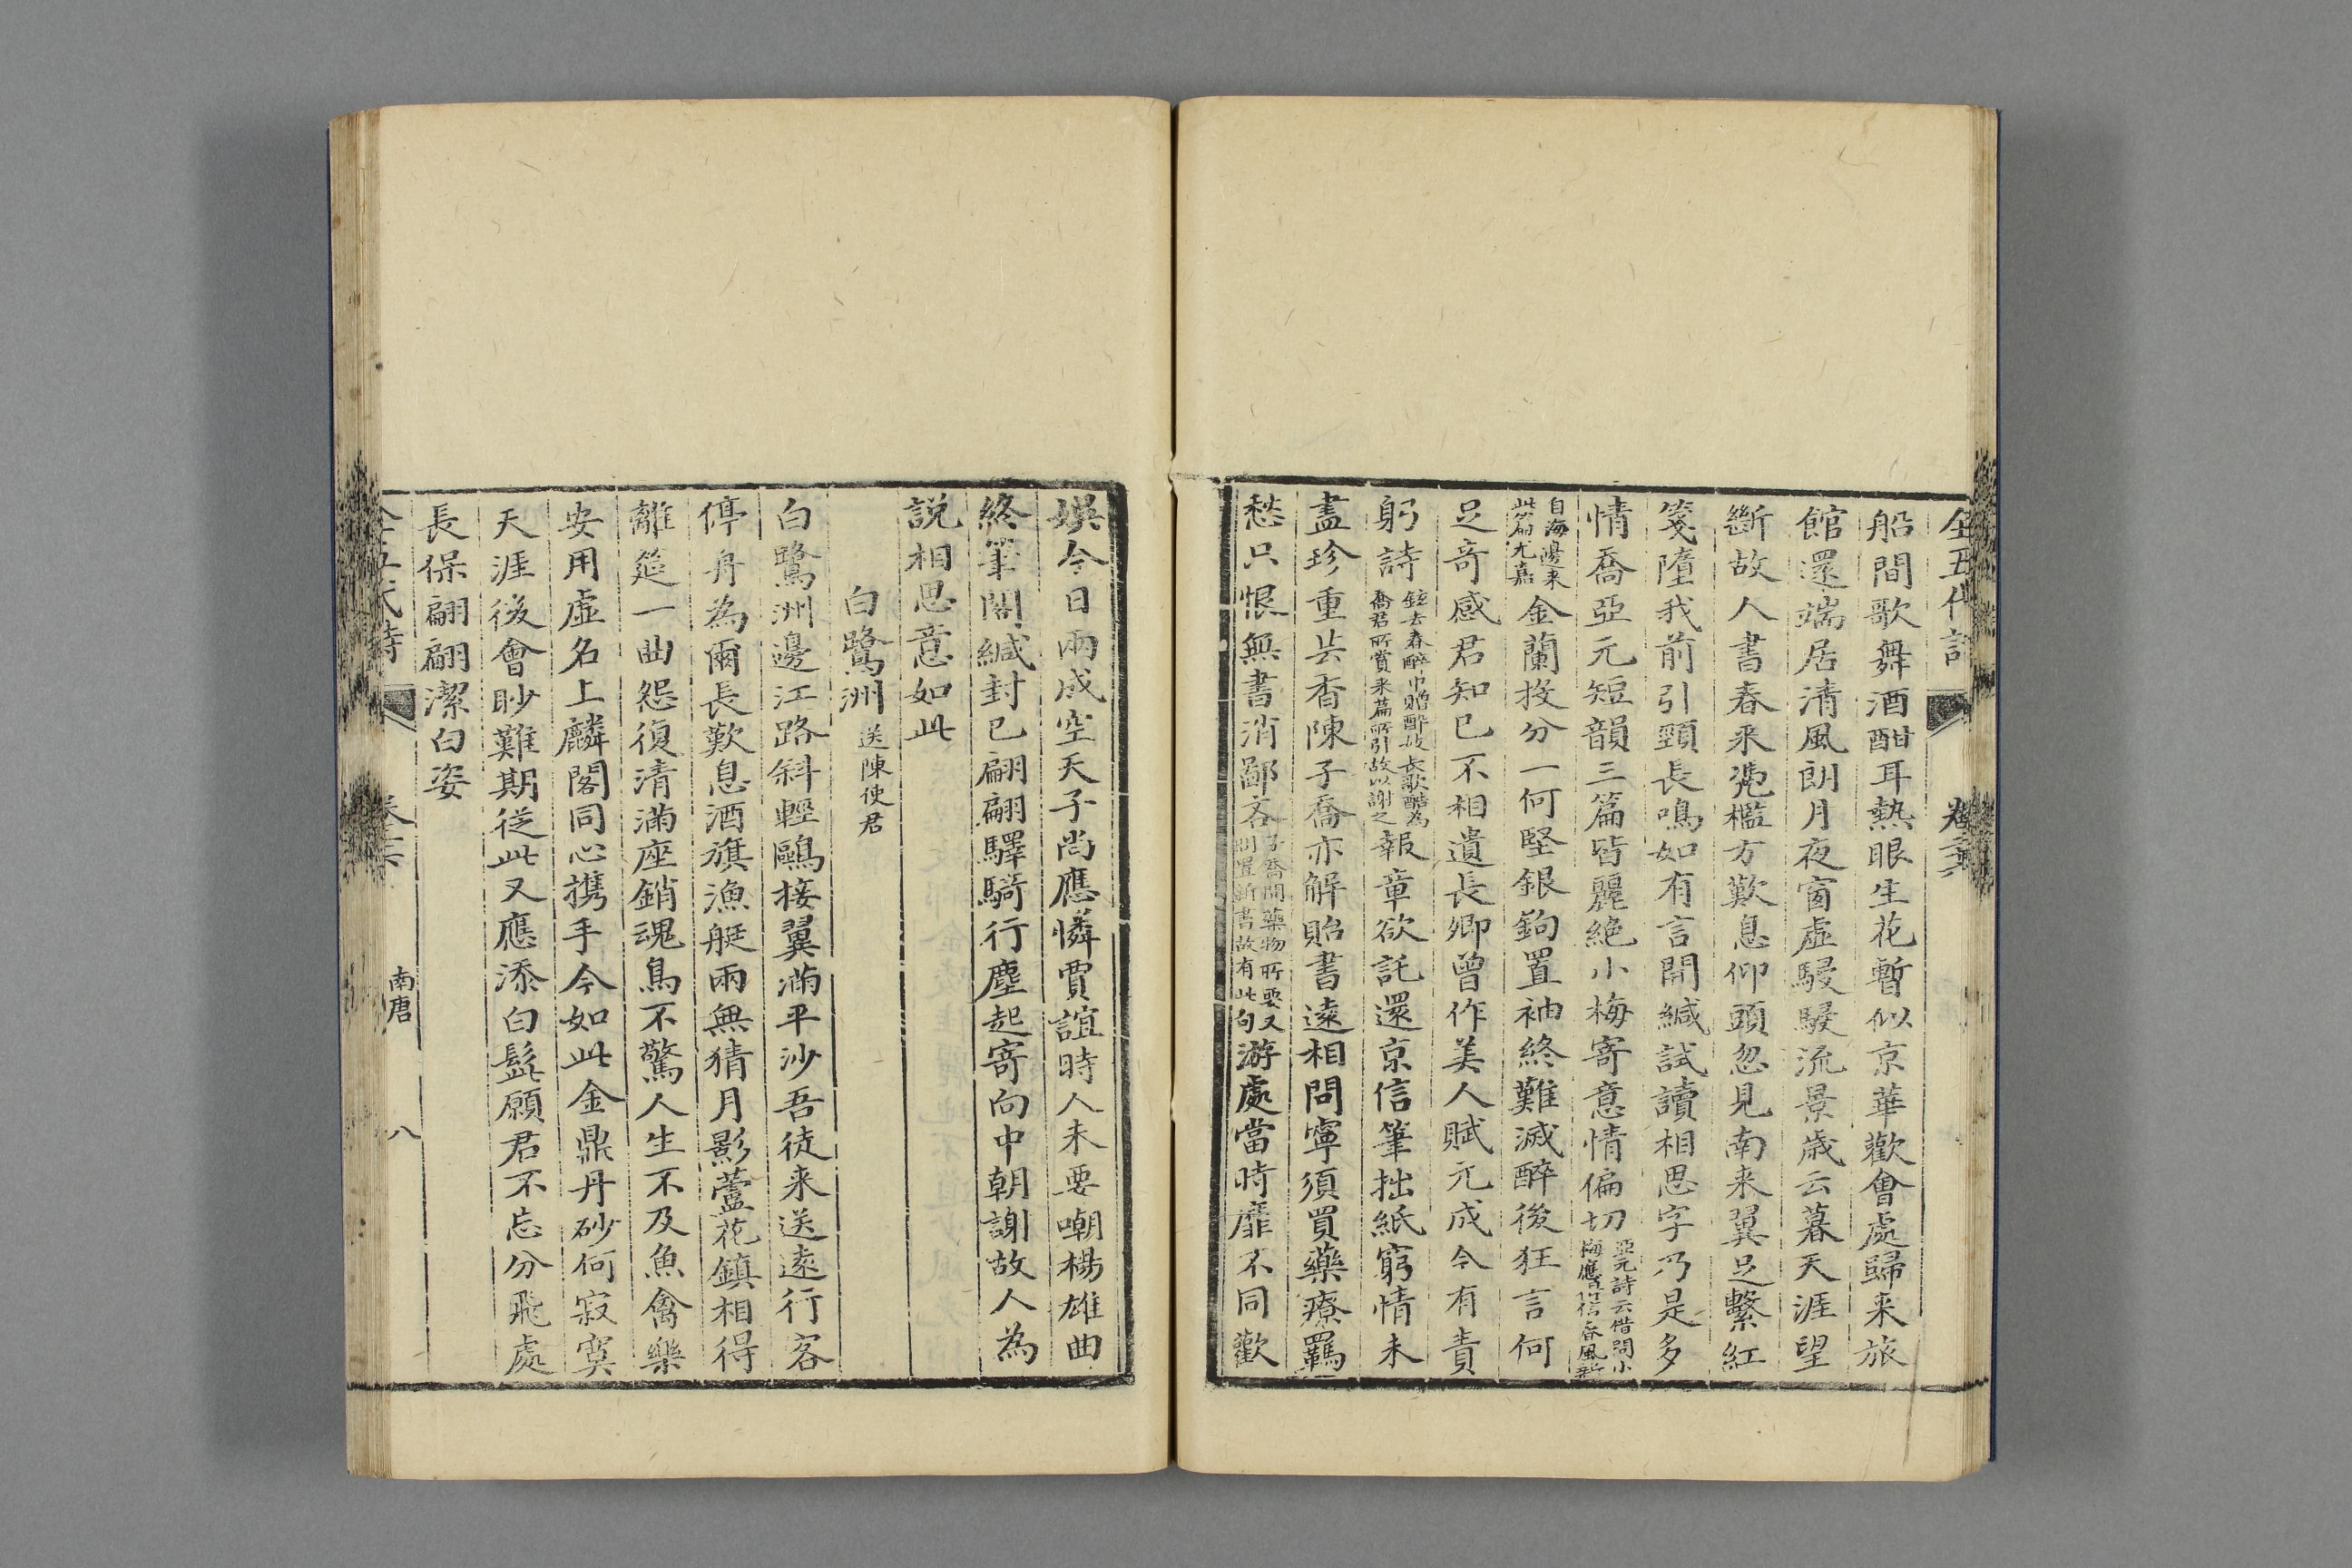 全五代詩 卷三六
船間歌舞酒酣耳熱眼生花暫似京華歡會處歸来旅
館還端居清風朗月夜窗虛駸駸流景歲云暮天涯望
斷故人書春来凭檻方歎息仰頭忽見南来翼足繫紅
箋墮我前引頸長鳴如有言開緘試讀相思字乃是多
情喬亞元短韻三篇皆麗絶小梅寄意情偏切亞元詩云借問小
梅應得信春風新
自海邊来
此篇尤嘉金蘭投分一何堅銀鉤置袖終難滅醉後狂言何
足奇感君知已不相遺長卿曾作美人賦元成今有責
躬詩鉉去春醉中贈醉妓長歌酷為
喬君所賞来篇所引故以謝之報章欲託還京信筆拙紙窮情未
盡珍重芸香陳子喬亦解貽書遠相問寧須買藥療羈
愁只恨無書消鄙吝子喬問藥物所要又
問置新書故有此句游處當時靡不同歡
娛今日兩成空天子尚應憐賈誼時人未要嘲楊雄曲
終筆閣緘封已翩翩驛騎行塵起寄向中朝謝故人為
說相思意如此
白鷺洲送陳使君
白鷺洲邊江路斜輕鷗接翼滿平沙吾徒来送遠行客
停舟為爾長歎息酒旗漁艇兩無猜月影蘆花鎮相得
離筵一曲怨復清滿座銷魂鳥不驚人生不及魚禽樂
安用虛名上麟閣同心携手今如此金鼎丹砂何寂寞
天涯後會眇難期從此又應添白髭願君不忘分飛處
長保翩翩潔白姿
全五代詩 卷三六 南唐 八